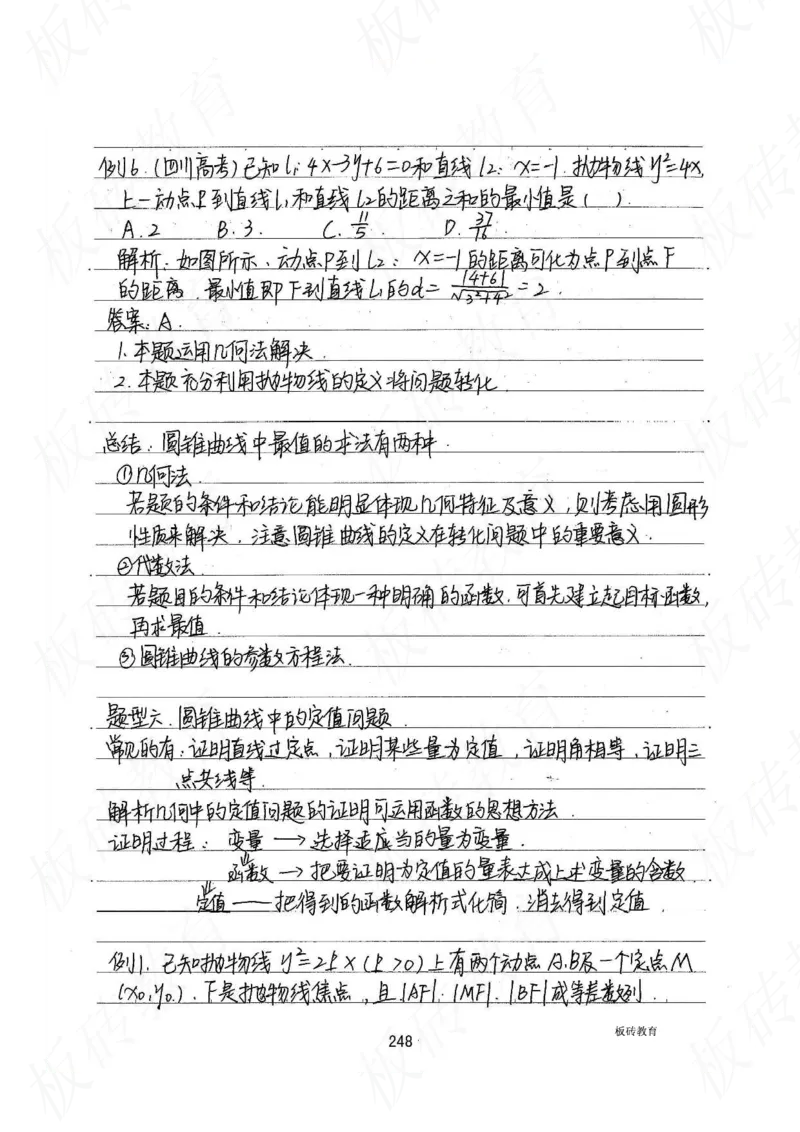 例6.(四川高考)已知l₁:4x-3y+6=0和直线l2:x=-1.抛物线y²=4x,
上一动点P到直线l₁和直线l2的距离之和的最小值是( ).
A.2 B.3. C.11/5. D.37/16.
解析:如图所示,动点P到l2:x=-1的距离可化为点P到点F
的距离.最小值即F到直线l₁的d=|4+6|/√3²+4²=2.
答案:A.
1.本题运用几何法解决.
2.本题充分利用抛物线的定义将问题转化.
总结:圆锥曲线中最值的求法有两种.
①几何法.
若题的条件和结论能明显体现几何特征及意义,则考虑用图形
性质来解决,注意圆锥曲线的定义在转化问题中的重要意义.
②代数法.
若题目的条件和结论体现一种明确的函数.可首先建立起目标函数,
再求最值.
③圆锥曲线的参数方程法.
题型六.圆锥曲线中的定值问题.
常见的有:证明直线过定点,证明某些量为定值,证明角相等,证明三
点共线等.
解析几何中的定值问题的证明可运用函数的思想方法.
证明过程: 变量→选择适应当的量为变量.
⇓
函数→把要证明为定值的量表达成上述变量的含数
⇓
定值——把得到的函数解析式化简.消去得到定值.
例1.已知抛物线y²=2px(p>0)上有两个动点A.B及一个定点M
(x₀,y₀).F是抛物线焦点,且|AF|.|MF|.|BF|成等差数列.
248
板砖教育